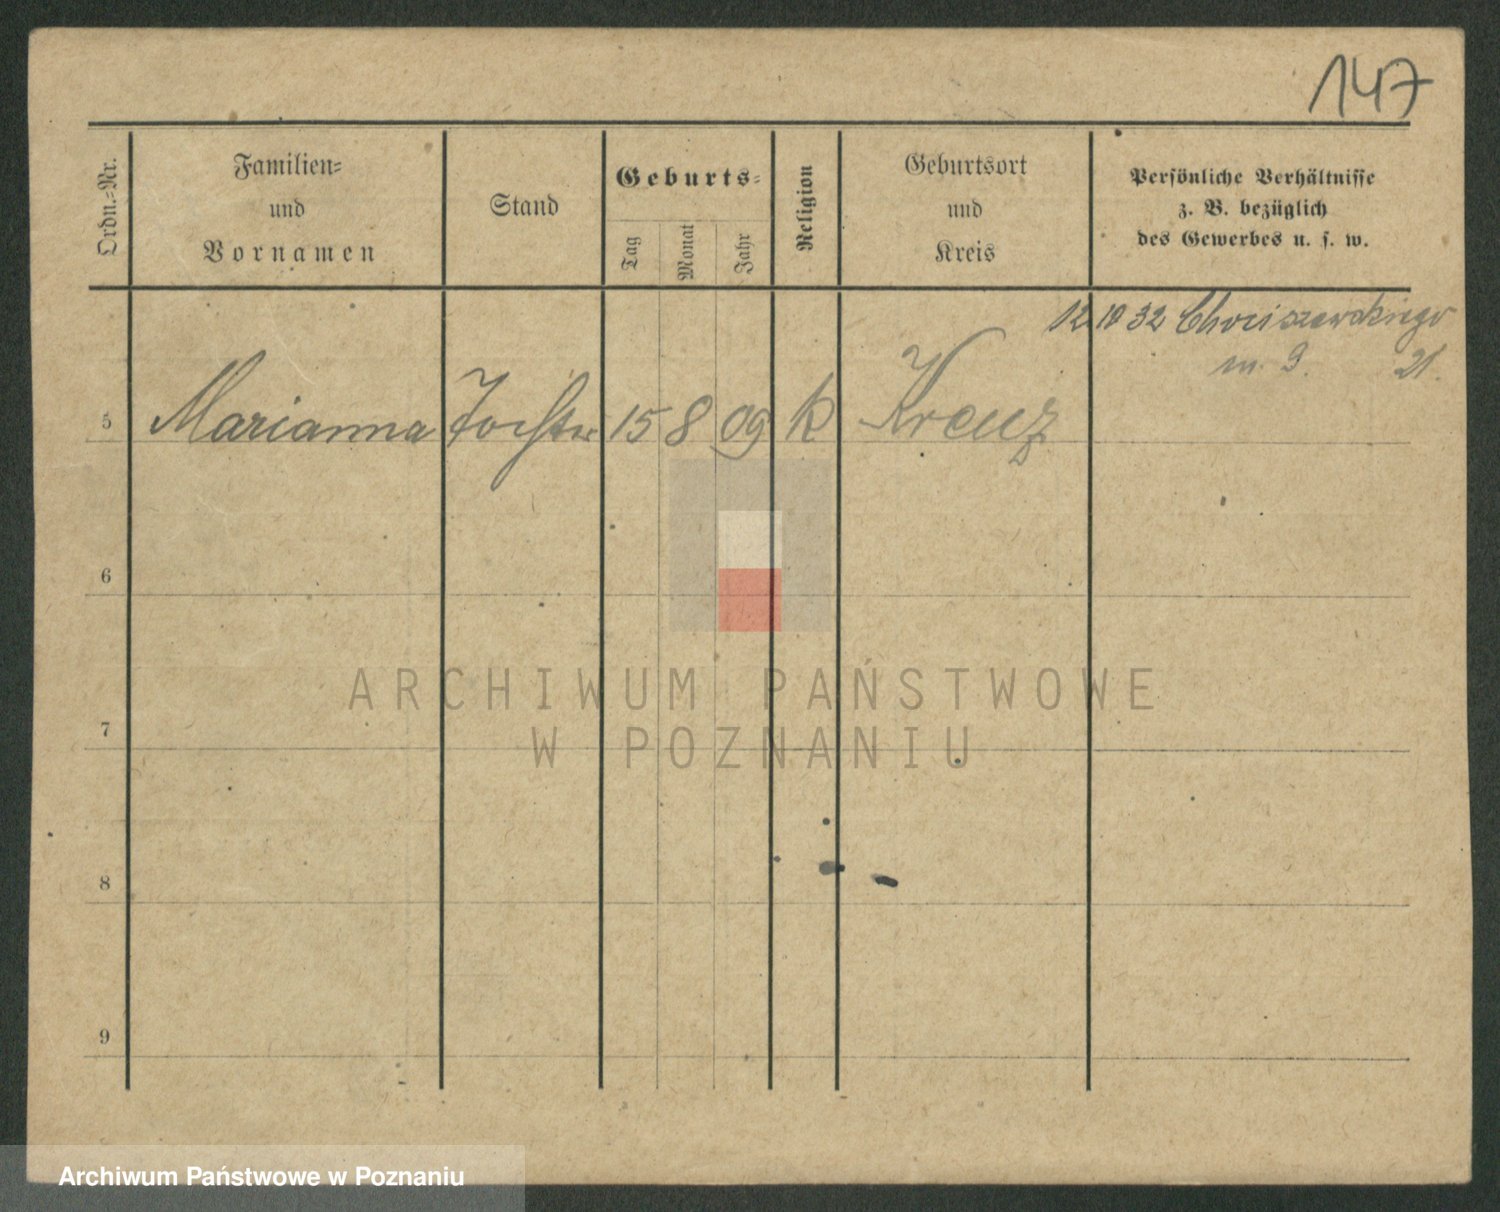 147
Ordn.-Nr.
Familien-
und
Vornamen
Stand
Geburts-
Tag
Monat
Jahr
Religion
Geburtsort
und
Kreis
Persönliche Verhältnisse
z. B. bezüglich
des Gewerbes u. s. w.
12 10 32 Chociszewskiego
m. 9. 21.
5 Marianna Tochter 15 8 09 k Kreuz
6
7
8
9
ARCHIWUM PAŃSTWOWE
W POZNANIU
Archiwum Państwowe w Poznaniu